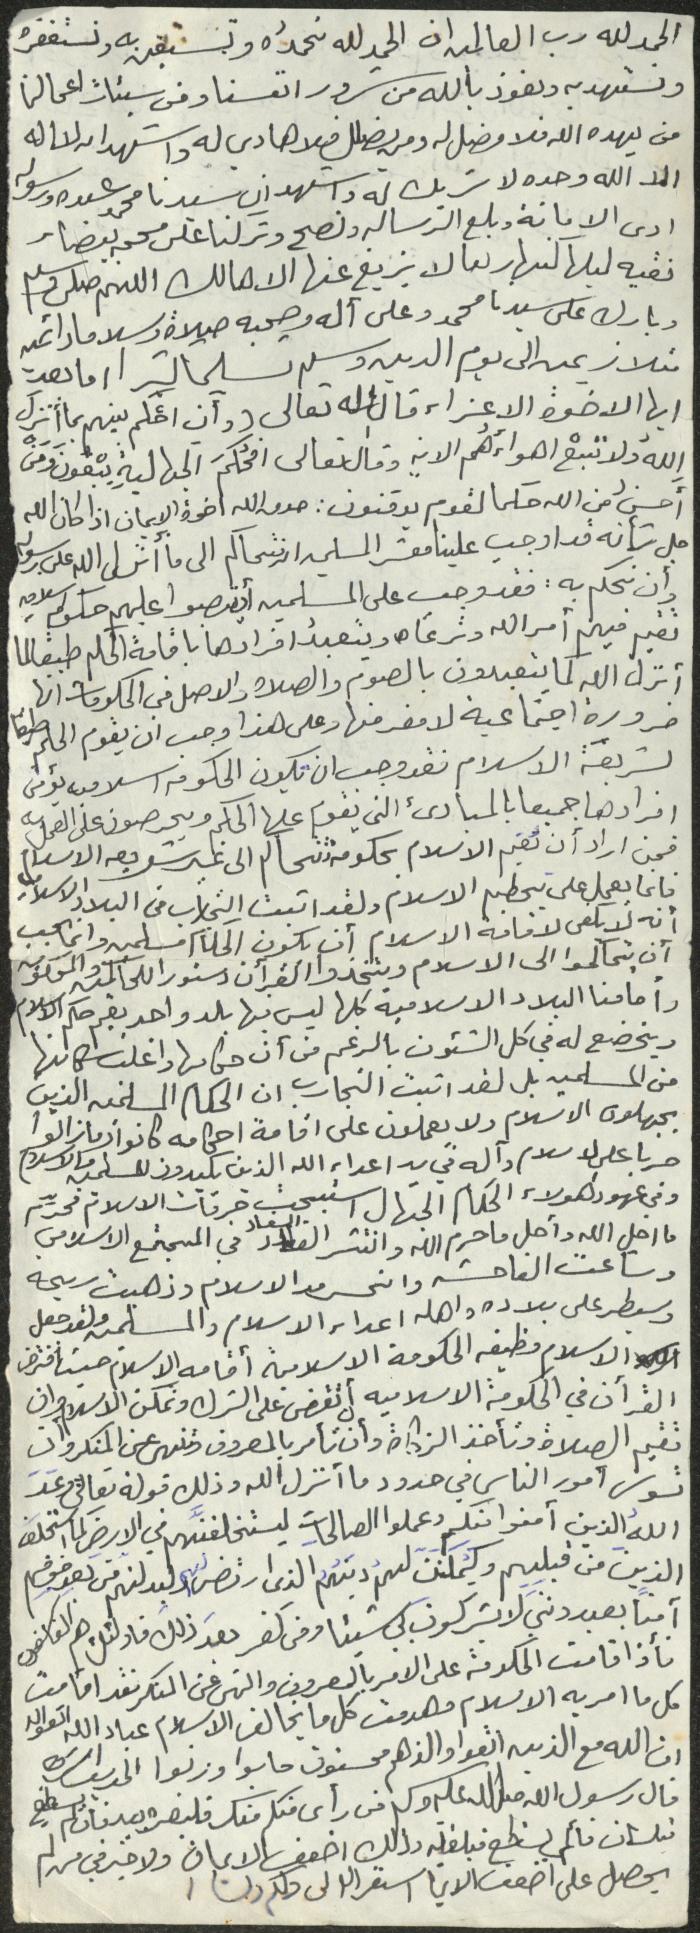 الحمد لله رب العالمين ان الحمد لله نحمده ونستعين به ونستغفره
ونستهديه ونعوذ بالله من شرور انفسنا ومن سيئات اعمالنا
من يهده الله فلا مضل له ومن يضلل فلا هادي له واشهد ان لا اله
الا الله وحده لا شريك له واشهد ان سيدنا محمد عبده ورسوله
ادى الامانة وبلغ الرسالة ونصح وتركنا على محجة بيضاء
نقيه ليلها كنهارها لا يزيغ عنها الا هالك اللهم صلي وسلم
وبارك على سيدنا محمد وعلى آله وصحبه صلاة وسلاما دائمين
متلازمين الى يوم الدين وسلم تسليما كثيرا اما بعد
ايها الاخوة الاعزاء قال الله تعالى (وأن احكم بينهم بما أنزل
الله ولا تتبع اهواءهم الايه وقال تعالى افحكم الجاهلية يبغون ومن
أحسن من الله حكما لقوم يوقنون: صدق الله اخوة الايمان اذا كان الله
جل شأنه قد اوجب علينا معشر المسلمين ان نتحاكم الى ما أنزل الله على رسوله
وأن نحكم به: فقد وجب على المسلمين أن ينصبوا عليهم حكومه اسلاميه
تقيم فيهم أمر الله وشرعه ويتعبد افرادها باقامة الحكم طبقا لما
أنزل الله كما يتعبدون بالصوم والصلاة والاصل في الحكومات انها
ضرورة اجتماعية لا مفر منها وعلى هذا وجب ان يقوم الحكم طبقا
لشريعة الاسلام فقد وجب ان تكون الحكومه اسلاميه يؤمن
افرادها جميعا بالمبادىء التي يقوم عليها الحكم ويحرصون على العمل به
فمن اراد أن تقيم الاسلام حكومة تتحاكم الى غير شريعه الاسلام
فانما يعمل على تحطيم الاسلام ولقد اثبتت التجارب في البلاد الاسلاميه
أنه لا يكفي لاقامة الاسلام أن يكون الحكام مسلمين وانما يجب
أن يتحاكموا الى الاسلام ويتخذوا القرآن دستورا للحاكمين والمحكومين
وأمامنا البلاد الاسلامية كلها ليس بها بلد واحد يقيم حكم الاسلام
ويخضع له في كل الشئون بالرغم من أن حكامها واغلب سكانها
من المسلمين بل لقد اثبتت التجارب ان الحكام المسلمين الذين
يجهلون الاسلام ولا يعملون على اقامة احكامه كانوا وما زالوا
حربا على الاسلام وآله في يد اعداء الله الذين يكيدون للمسلمين والاسلام
وفي عهود هولاء الحكام الجهال استبيحت حرمات الاسلام فحرم
ما احل الله وأحل ما حرم الله وانتشر الفساد في المجتمع الاسلامي
وشاعت الفاحشه وانحسر مد الاسلام وذهبت ريحه
وسيطر على بلاده واهله اعداء الاسلام والمسلمين ولقد جعل
الاسلام وظيفه الحكومة الاسلامية أقامه الاسلام حيث افترض
القرآن في الحكومة الاسلاميه أن تقضي على الشرك وتمكن الاسلام وان
تقيم الصلاة وتأخذ الزكاة وأن تأمر بالمعروف وتنهى عن المنكر وان
تسوس أمور الناس في حدود ما أنزل الله وذلك قوله تعالى وعد
الله الذين آمنوا منكم وعملوا الصالحات ليستخلفنهم في الارض كما استخلف
الذين من قبلهم وليمكنن لهم دينهم الذي ارتضى لهم وليبدلنهم من بعد خوفهم
آمنا يعبدونني لا يشركون بي شيئا ومن كفر بعد ذلك فاولئك هم الفاسقون
فأذا قامت الحكومة على الامر بالمعروف والنهي عن المنكر فقد اقامت
كل ما امر به الاسلام وهدمت كل ما يخالف الاسلام عباد الله اتقوا الله
ان الله مع الذين اتقوا والذين هم محسنون الحديث
قال رسول الله صلى الله عليه وسلم من رأى منكم منكر فليغيره بيده فان لم يستطع
فبلسانه فأن لم يستطع فبقلبه وذلك اضعف الايمان ولا خير في من لم
يحصل على اضعف الايمان استغر الله لي ولكم